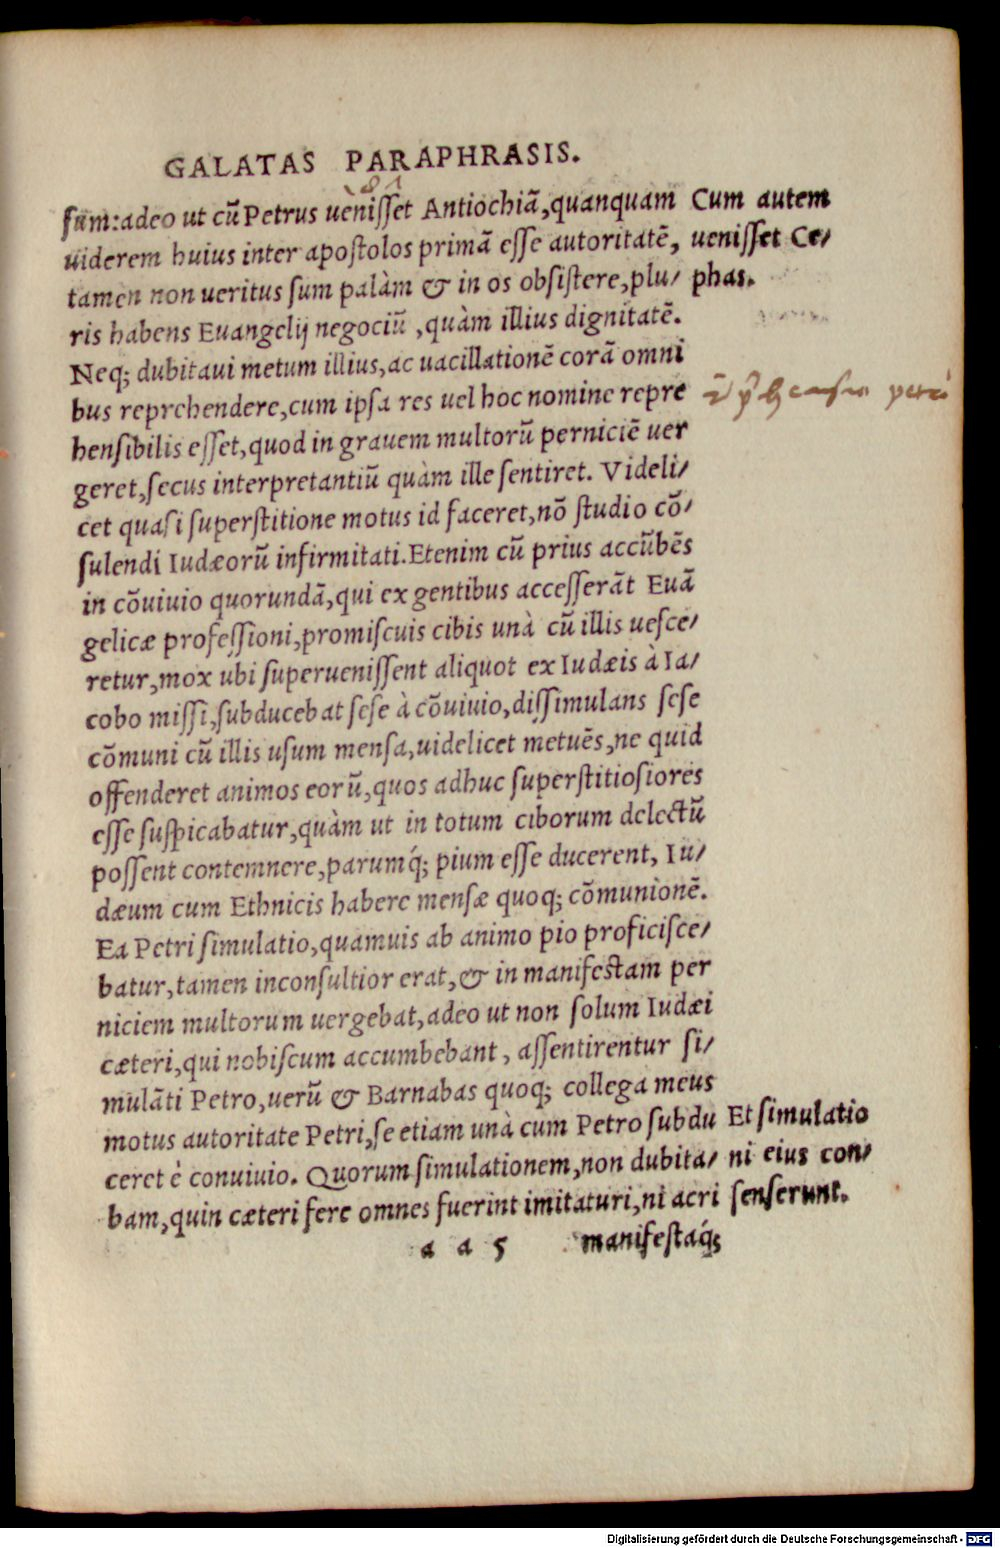 GALATAS PARAPHRASIS.
sum: adeo ut cũ Petrus uènisset Antiochiã, quanquam
uiderem huius inter apostolos primã esse autoritatẽ,
tamen non ueritus sum palàm & in os obsistere, plu/
ris habens Euangelij negociũ, quàm illius dignitatẽ.
Neq; dubitaui metum illius, ac uacillationẽ corã omni
bus reprehendere, cum ipsa res uel hoc nomine repre
hensibilis esset, quod in grauem multorũ perniciẽ uer
geret, secus interpretantiũ quàm ille sentiret. Videli/
cet quasi superstitione motus id faceret, nõ studio cõ/
sulendi Iudæorũ infirmitati. Etenim cũ prius accũbẽs
in cõuiuio quorundã, qui ex gentibus accesserãt Euã
gelicæ professioni, promiscuis cibis unà cũ illis uesce/
retur, mox ubi superuenissent aliquot ex Iudæis à Ia/
cobo missi, subducebat sese à cõuiuio, dissimulans sese
cõmuni cũ illis usum mensa, uidelicet metuẽs, ne quid
offenderet animos eorũ, quos adhuc superstitiosiores
esse suspicabatur, quàm ut in totum ciborum delectũ
possent contemnere, parumq́; pium esse ducerent, Iu/
dæum cum Ethnicis habere mensæ quoq; cõmunionẽ.
Ea Petri simulatio, quamuis ab animo pio proficisce/
batur, tamen inconsultior erat, & in manifestam per
niciem multorum uergebat, adeo ut non solum Iudæi
cæteri, qui nobiscum accumbebant, assentirentur si/
mulãti Petro, uerũ & Barnabas quoq; collega meus
motus autoritate Petri, se etiam unà cum Petro subdu
ceret è conuiuio. Quorum simulationem, non dubita/
bam, quin cæteri fere omnes fuerint imitaturi, ni acri
a a 5 manifestaq́;
Cum autem
uenisset Ce/
phas.
petri
Et simulatio
ni eius con/
senserunt.
Digitalisierung gefördert durch die Deutsche Forschungsgemeinschaft - DFG